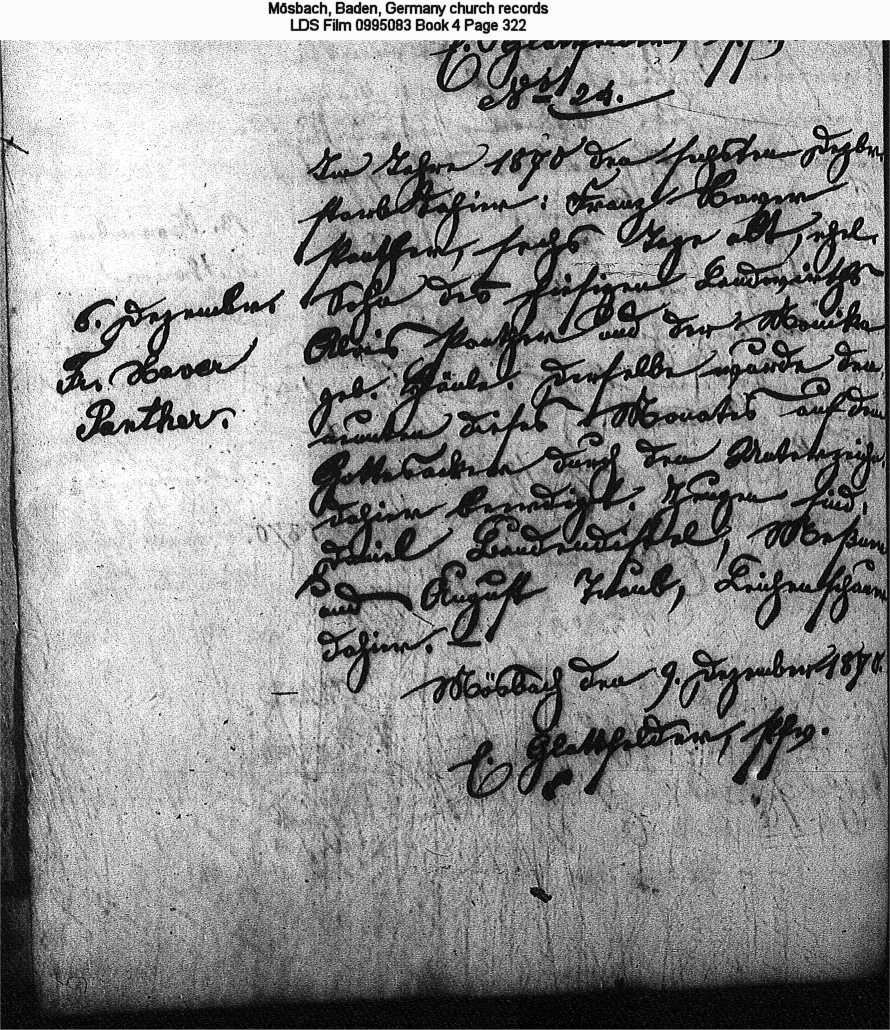 Mösbach, Baden, Germany church records
LDS Film 0995083 Book 4 Page 322
No 24.
Im Jahre 1870 den sechsten Dezbr.
starb dahier: Franz Xaver
Panther, sechs Tage alt, ehel.
Sohn des hiesigen Landwirths
Alois Panther und der Monika
geb. Derselbe wurde den
neunten dieses Monates auf dem
Gottesacker durch den Unterzeichn
dahier beerdigt. Zeugen sind,
Daniel Meßner
und August Leichenschauer
dahier. —
Mösbach den 9. Dezember 1870.
E. Glattfelder, Pfv.
6. Dezember.
Fr. Xaver
Panther.